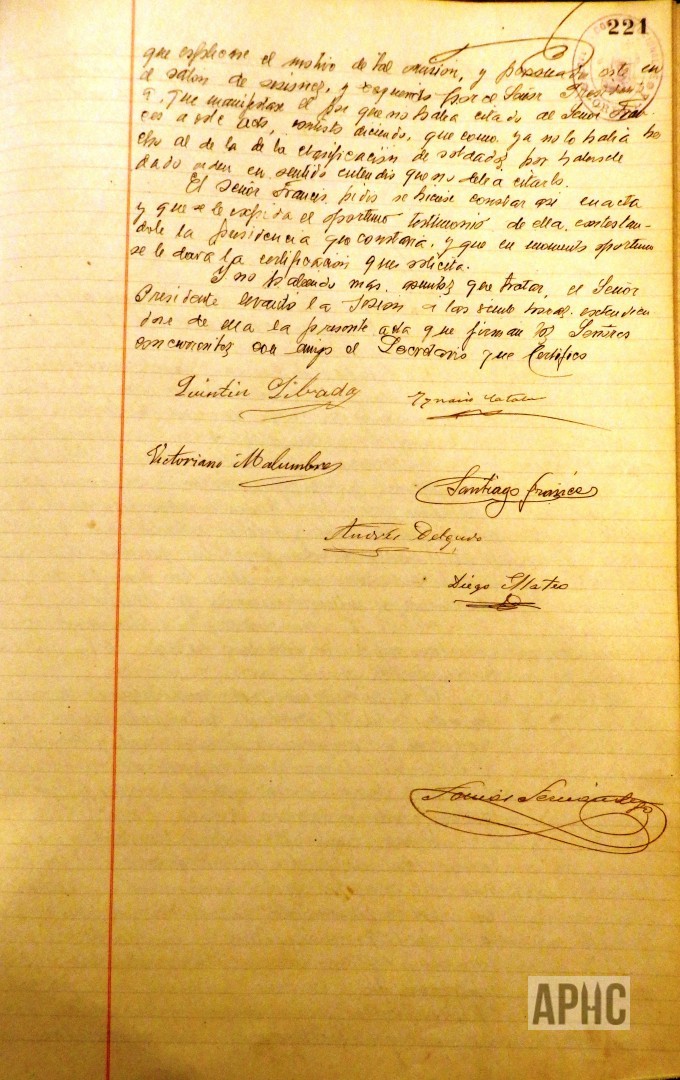 221
que esplicase el motivo de tal omisión, y personado este en
el salon de sesiones, y requerido por el Señor Presiden
a que manifestase el por que no habia citado al Señor Fran
ces a este acto, contestó diciendo, que como ya no lo habia he
cho al de la de la clasificación de soldados por haversele
dado orden en sentido entendio que no debia citarlo.
El señor Francés, pidio se hiciese constar asi en acta
y que se le expida el oportuno testimonio de ella, contestan-
dole la presidencia que constaria, y que en momento oportuno
se le dará la certificación que solicita.
Y no habiendo mas asuntos que tratar, el Señor
Presidente levantó la Sesion a las siento horas extendien
dose de ella la presente acta que firman los Señores
concurrentes con migo el Secretario que Certifico
Quintin Libada Ygnacio Catalan
Victoriano Malumbres
Santiago Francés
Andrés Delgado
Diego Mateo
Tomás
APHC